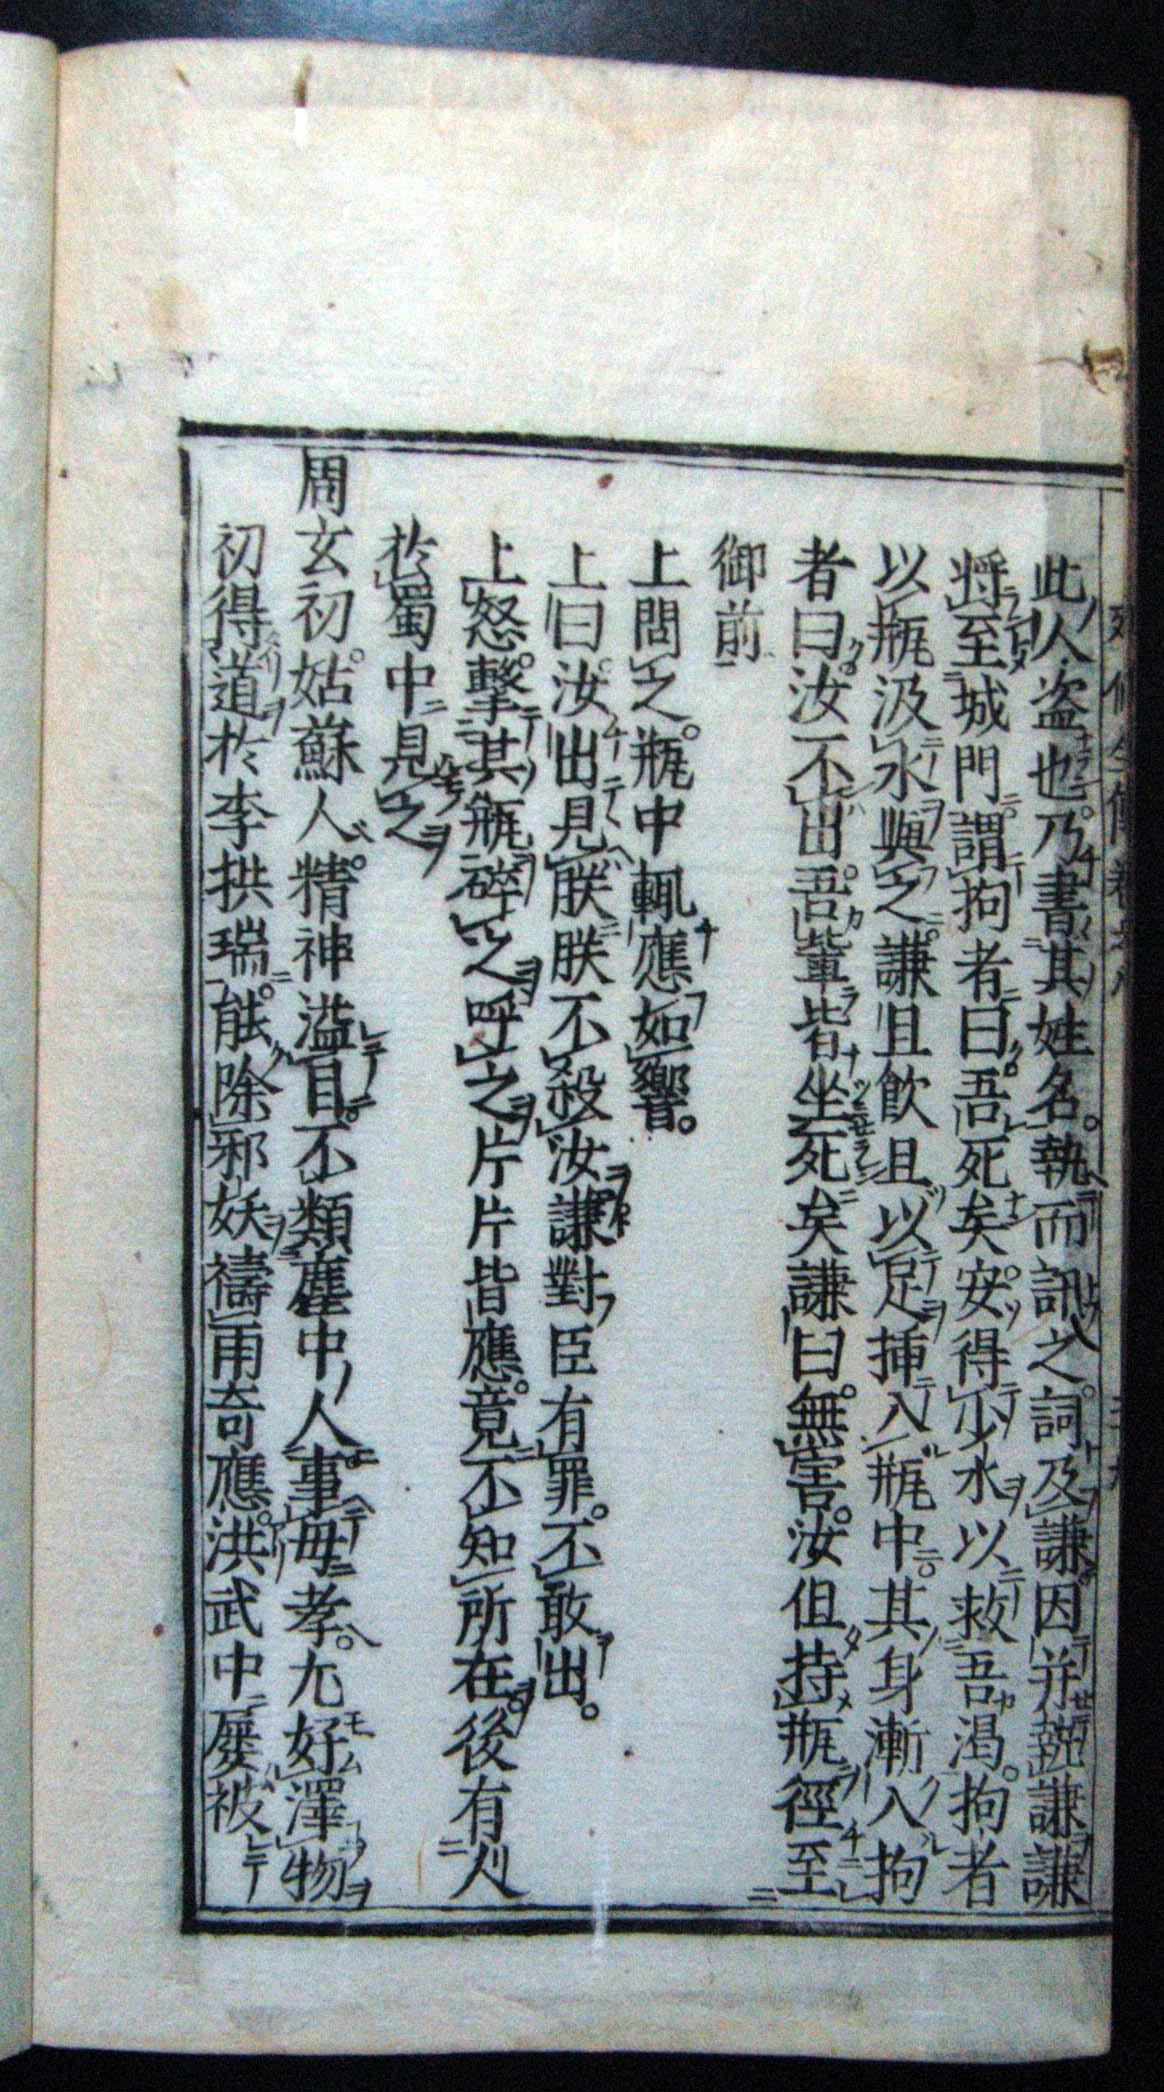 此人盗也乃書其姓名。執而訊之。詞及謙因并逮謙謙
將至城門。謂拘者曰。吾死矣。安得少水以救吾渇。拘者
以瓶汲水與之。謙且飲且以足挿入瓶中。其身漸入拘
者曰。汝不出。吾輩皆坐死矣謙曰。無害。汝但持瓶徑至
御前
上問之。瓶中輒應如響。
上曰汝。出見朕朕不殺汝謙對臣有罪。不敢出。
上怒。擊其瓶碎之呼之片片皆應。竟不知所在。後有人
於蜀中見之
周玄初。姑蘇人。精神溢目。不類塵中人事母孝。尤好澤物
初得道於李拱瑞。能除邪妖禱雨奇應。洪武中屡被